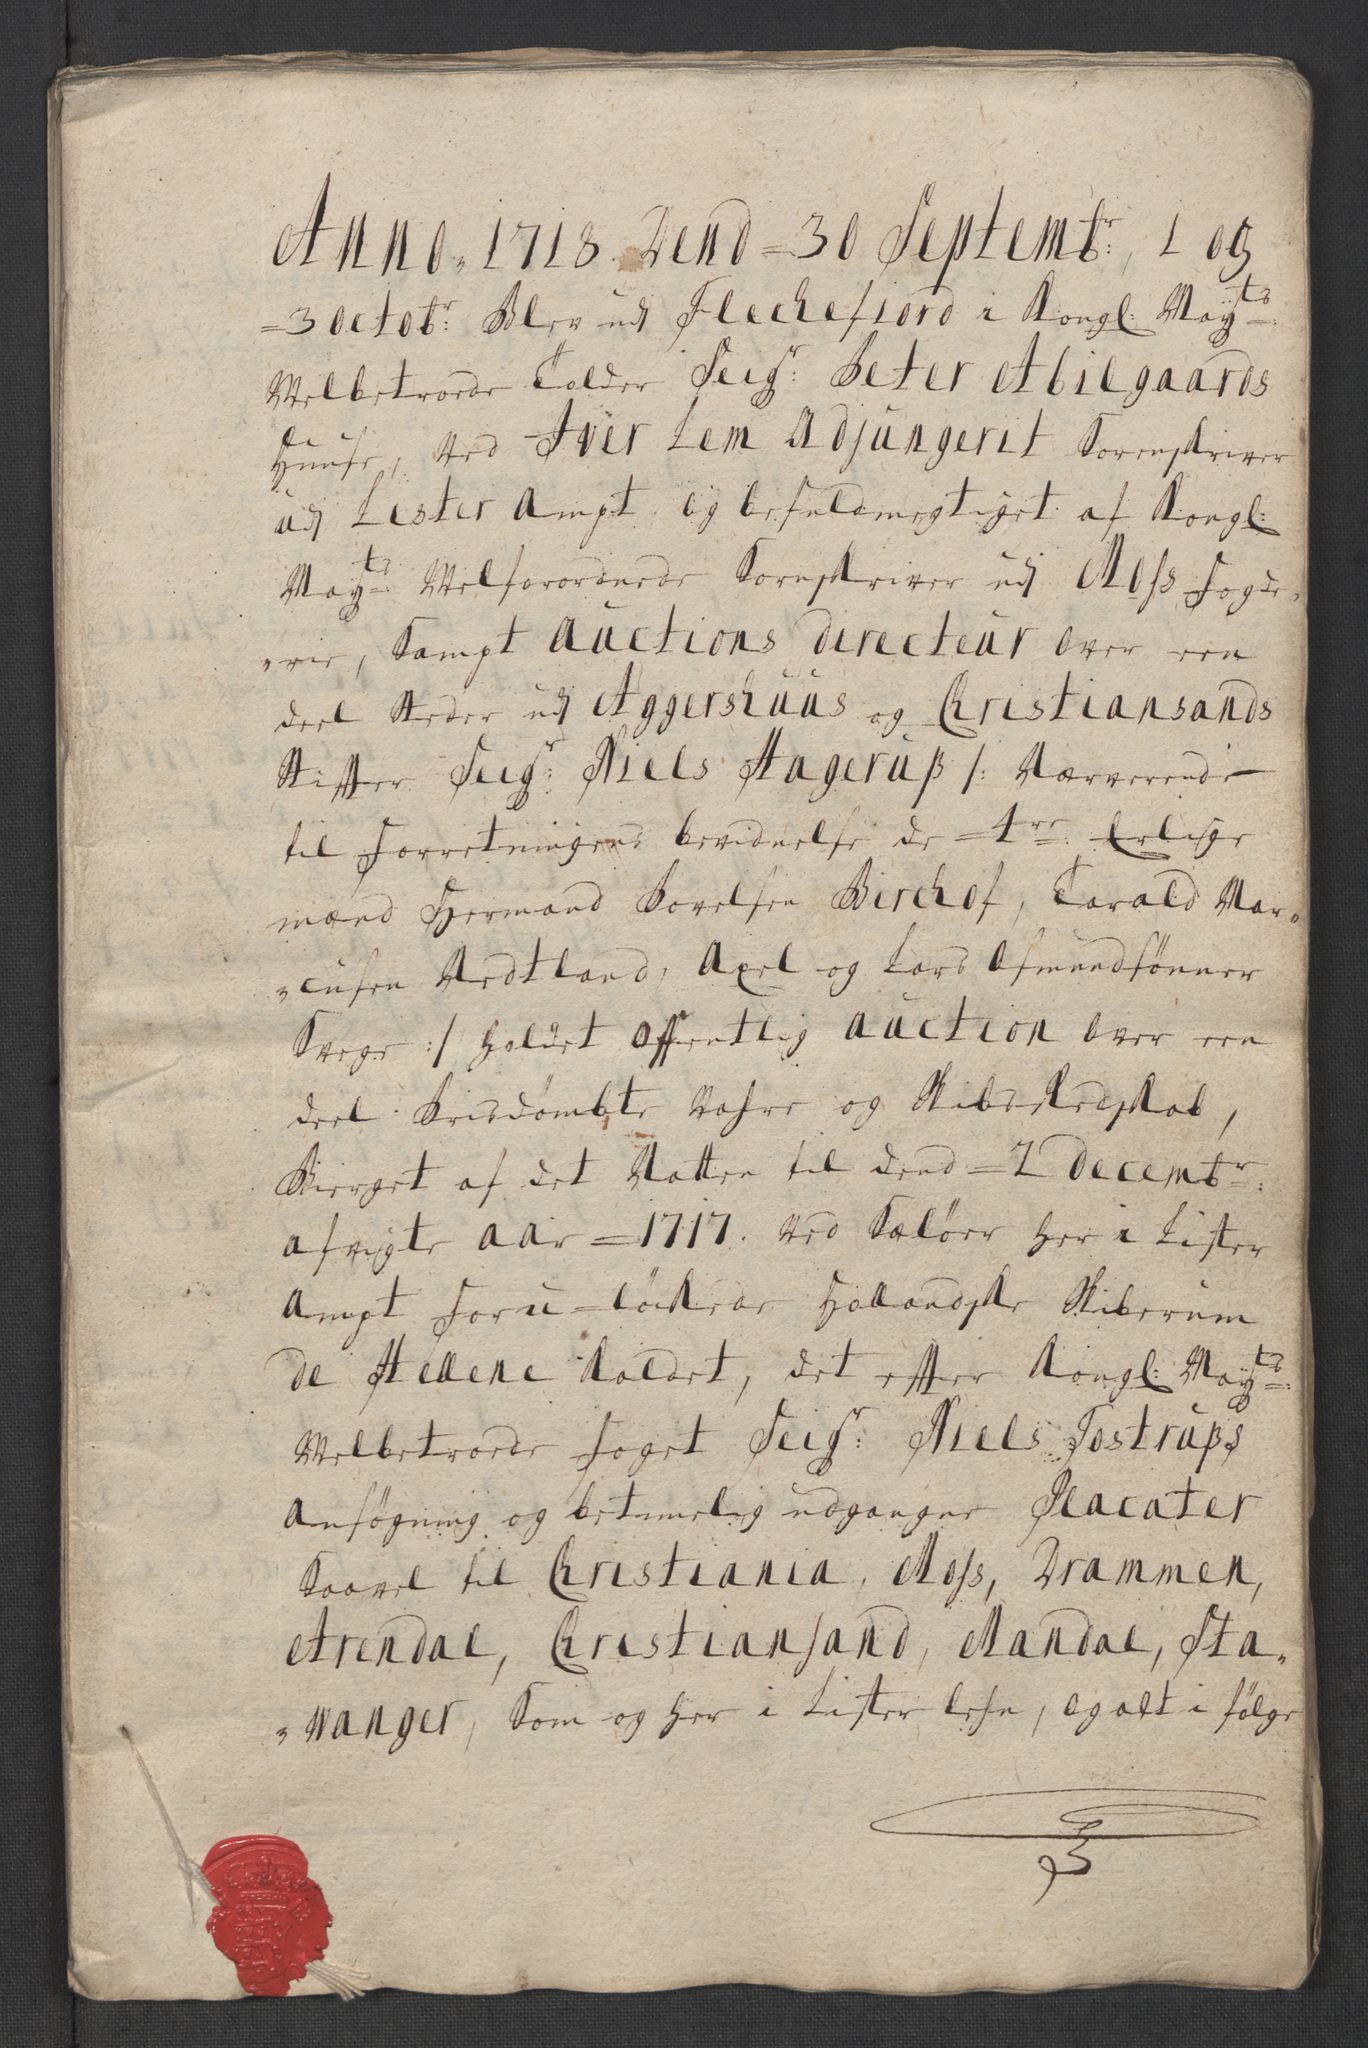 Anno 1718. Dend 30 Septembr:, 1 og
3 Octobr: Blev udj Fleckefiord i Kongl: Mayts:
Welbetroede Tolder Seigr: Peter Abilgaards
Huuse, ved Iver Lem Adjungerit Sorenskriver
udj Lister Ampt og befuldmegtiget af Kongl:
Mayts: Welforordnede Sorenskriver udj Moss Fogde-
rie, Sampt Auctions Directeur over een
deel Steder udj Aggershuus og Christiansands
Stifter Seigr: Niels Hagerup /: Nærverende
til Forretningens bevidnelse de 4re: Erlige
mænd Hermand Povelsen Birchof, Tarald Mar-
cusen Nedtland, Axel og Lars Asmundsönner
Svege :/ holdet Offentlig Auction over een
deel Prisdömbte Vahre og Skibs Redskab,
Bierget af det Natten til dend 2 Decembr:
afvigte Aar 1717. ved Sælöer her i Lister
Ampt Foru-löckede Hollandske Skiberum
de Hellene Kaldet, det efter Kongl: Mayts:
Welbetroede Foget Seigr: Niels Tostrups
Ansøgning og betimelig udgangne Placater
Saavel til Christiania, Moss, Drammen,
Arendal, Christiansand, Mandal, Sta-
vanger, Som og her i Lister Lehn, og alt i følge